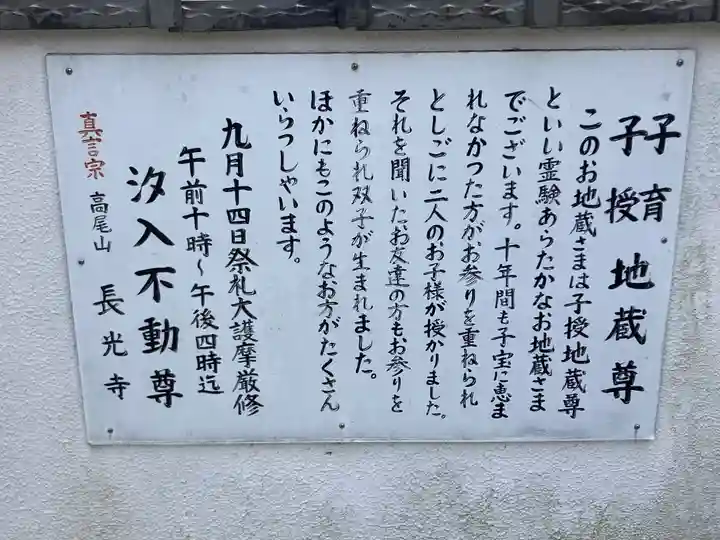 子育
子授
地蔵尊
このお地蔵さまは子授地蔵尊
といい霊験あらたかなお地蔵さま
でございます。十年間も子宝に恵ま
れなかつた方がお参りを重ねられ
としごに二人のお子様が授かりました。
それを聞いたお友達の方もお参りを
重ねられ双子が生まれました。
ほかにもこのようなお方がたくさん
いらつしやいます。
九月十四日祭礼大護摩厳修
午前十時～午後四時迄
汐入不動尊
真言宗 高尾山 長光寺